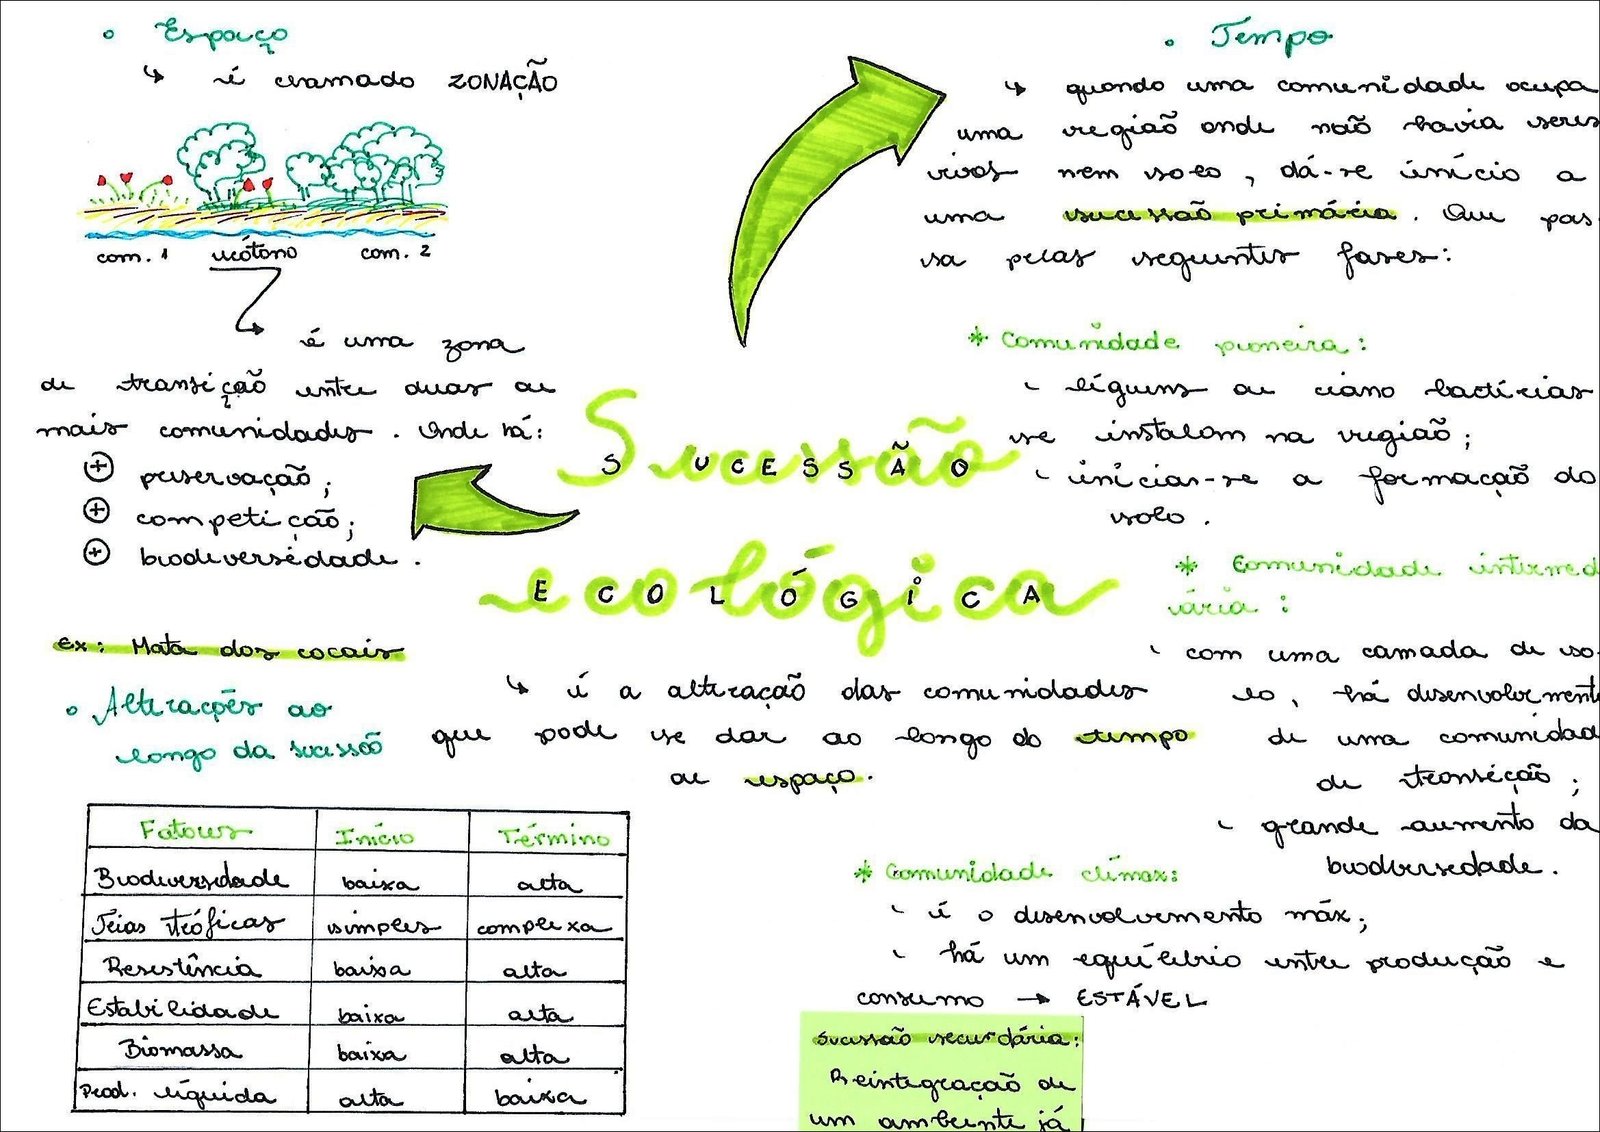 Sucessão
SUCESSÃO
ecológica
ECOLÓGICA
↳ é a alteração das comunidades
que pode se dar ao longo do tempo
ou espaço.
• Espaço
↳ é chamado ZONAÇÃO
com. 1 ecótono com. 2
é uma zona
de transição entre duas ou
mais comunidades. Onde há:
⊕ preservação;
⊕ competição;
⊕ biodiversidade.
Ex: Mata dos cocais
• Alterações ao
longo da sucessão
Fatores Início Término
Biodiversidade baixa alta
Teias tróficas simples complexa
Resistência baixa alta
Estabilidade baixa alta
Biomassa baixa alta
Prod. líquida alta baixa
• Tempo
↳ quando uma comunidade ocupa
uma região onde não havia seres
vivos nem solo, dá-se início a
uma sucessão primária. Que pas-
sa pelas seguintes fases:
* Comunidade pioneira:
- líquens ou ciano bactérias
se instalam na região;
- iniciar-se a formação do
solo.
* Comunidade intermed
iária:
- com uma camada de so-
lo, há desenvolvimento
de uma comunidad
de transição;
- grande aumento da
biodiversidade.
* Comunidade clímax:
- é o desenvolvimento máx;
- há um equilíbrio entre produção e
consumo → ESTÁVEL
Sucessão secundária:
Reintegração de
um ambiente já